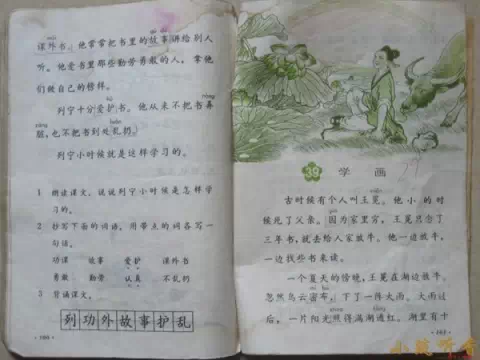 课外书。他常常把书里的故事讲给别人
听。他爱书里那些勤劳勇敢的人，拿他
们做自己的榜样。
列宁十分爱护书。他从来不把书弄
脏，也不把书到处乱扔。
列宁小时候就是这样学习的。
1 朗读课文。说说列宁小时候是怎样学
习的。
2 抄写下面的词语，用带点的词各写一
句话。
功课 故事 爱护 课外书
勇敢 勤劳 认真 不乱扔
3 背诵课文。
列功外故事护乱
39 学画
古时候有个人叫王冕。他小的时
候死了父亲。因为家里穷，王冕只念了
三年书，就去给人家放牛。他一边放牛，
一边找些书来读。
一个夏天的傍晚，王冕在湖边放牛。
忽然乌云密布，下了一阵大雨。大雨过
后，一片阳光照得满湖通红。湖里有十